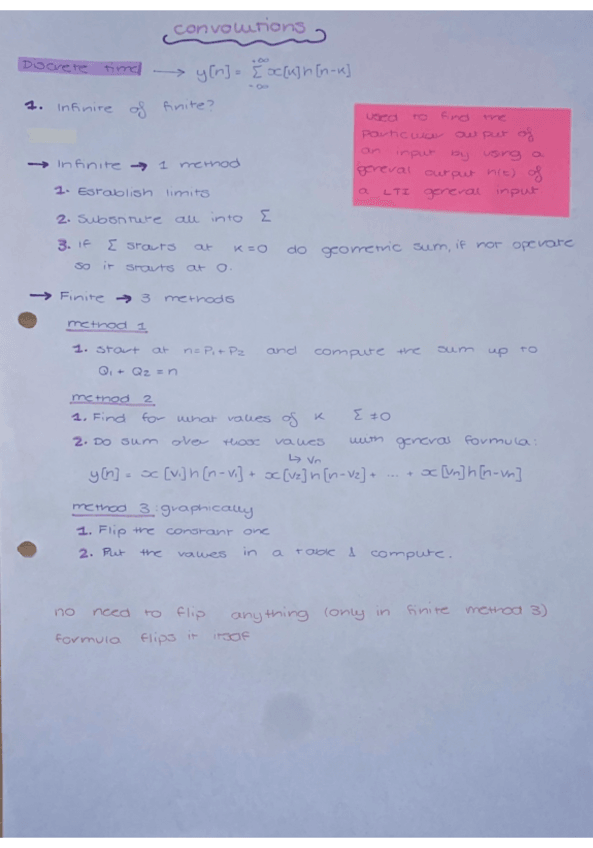 convolutions
Discrete time → y[n] = +∞ Σ -∞ x[k]h[n-k]
1. Infinite of finite?
used to find the
particular output of
an input by using a
general output h(t) of
a LTI general input
→ Infinite → 1 method
1. Establish limits
2. Substitute all into Σ
3. If Σ starts at k=0 do geometric sum, if not operate
so it starts at 0.
→ Finite → 3 methods
method 1
1. Start at n=P₁+P₂ and compute the sum up to
Q₁ + Q₂ = n
method 2
1. Find for what values of k Σ≠0
2. Do sum over those values with general formula:
↳ Vn
y[n] = x[v₁]h[n-v₁] + x[v₂]h[n-v₂] + ... + x[vn]h[n-vn]
method 3: graphically
1. Flip the constant one
2. Put the values in a table & compute.
no need to flip anything (only in finite method 3)
formula flips it itself